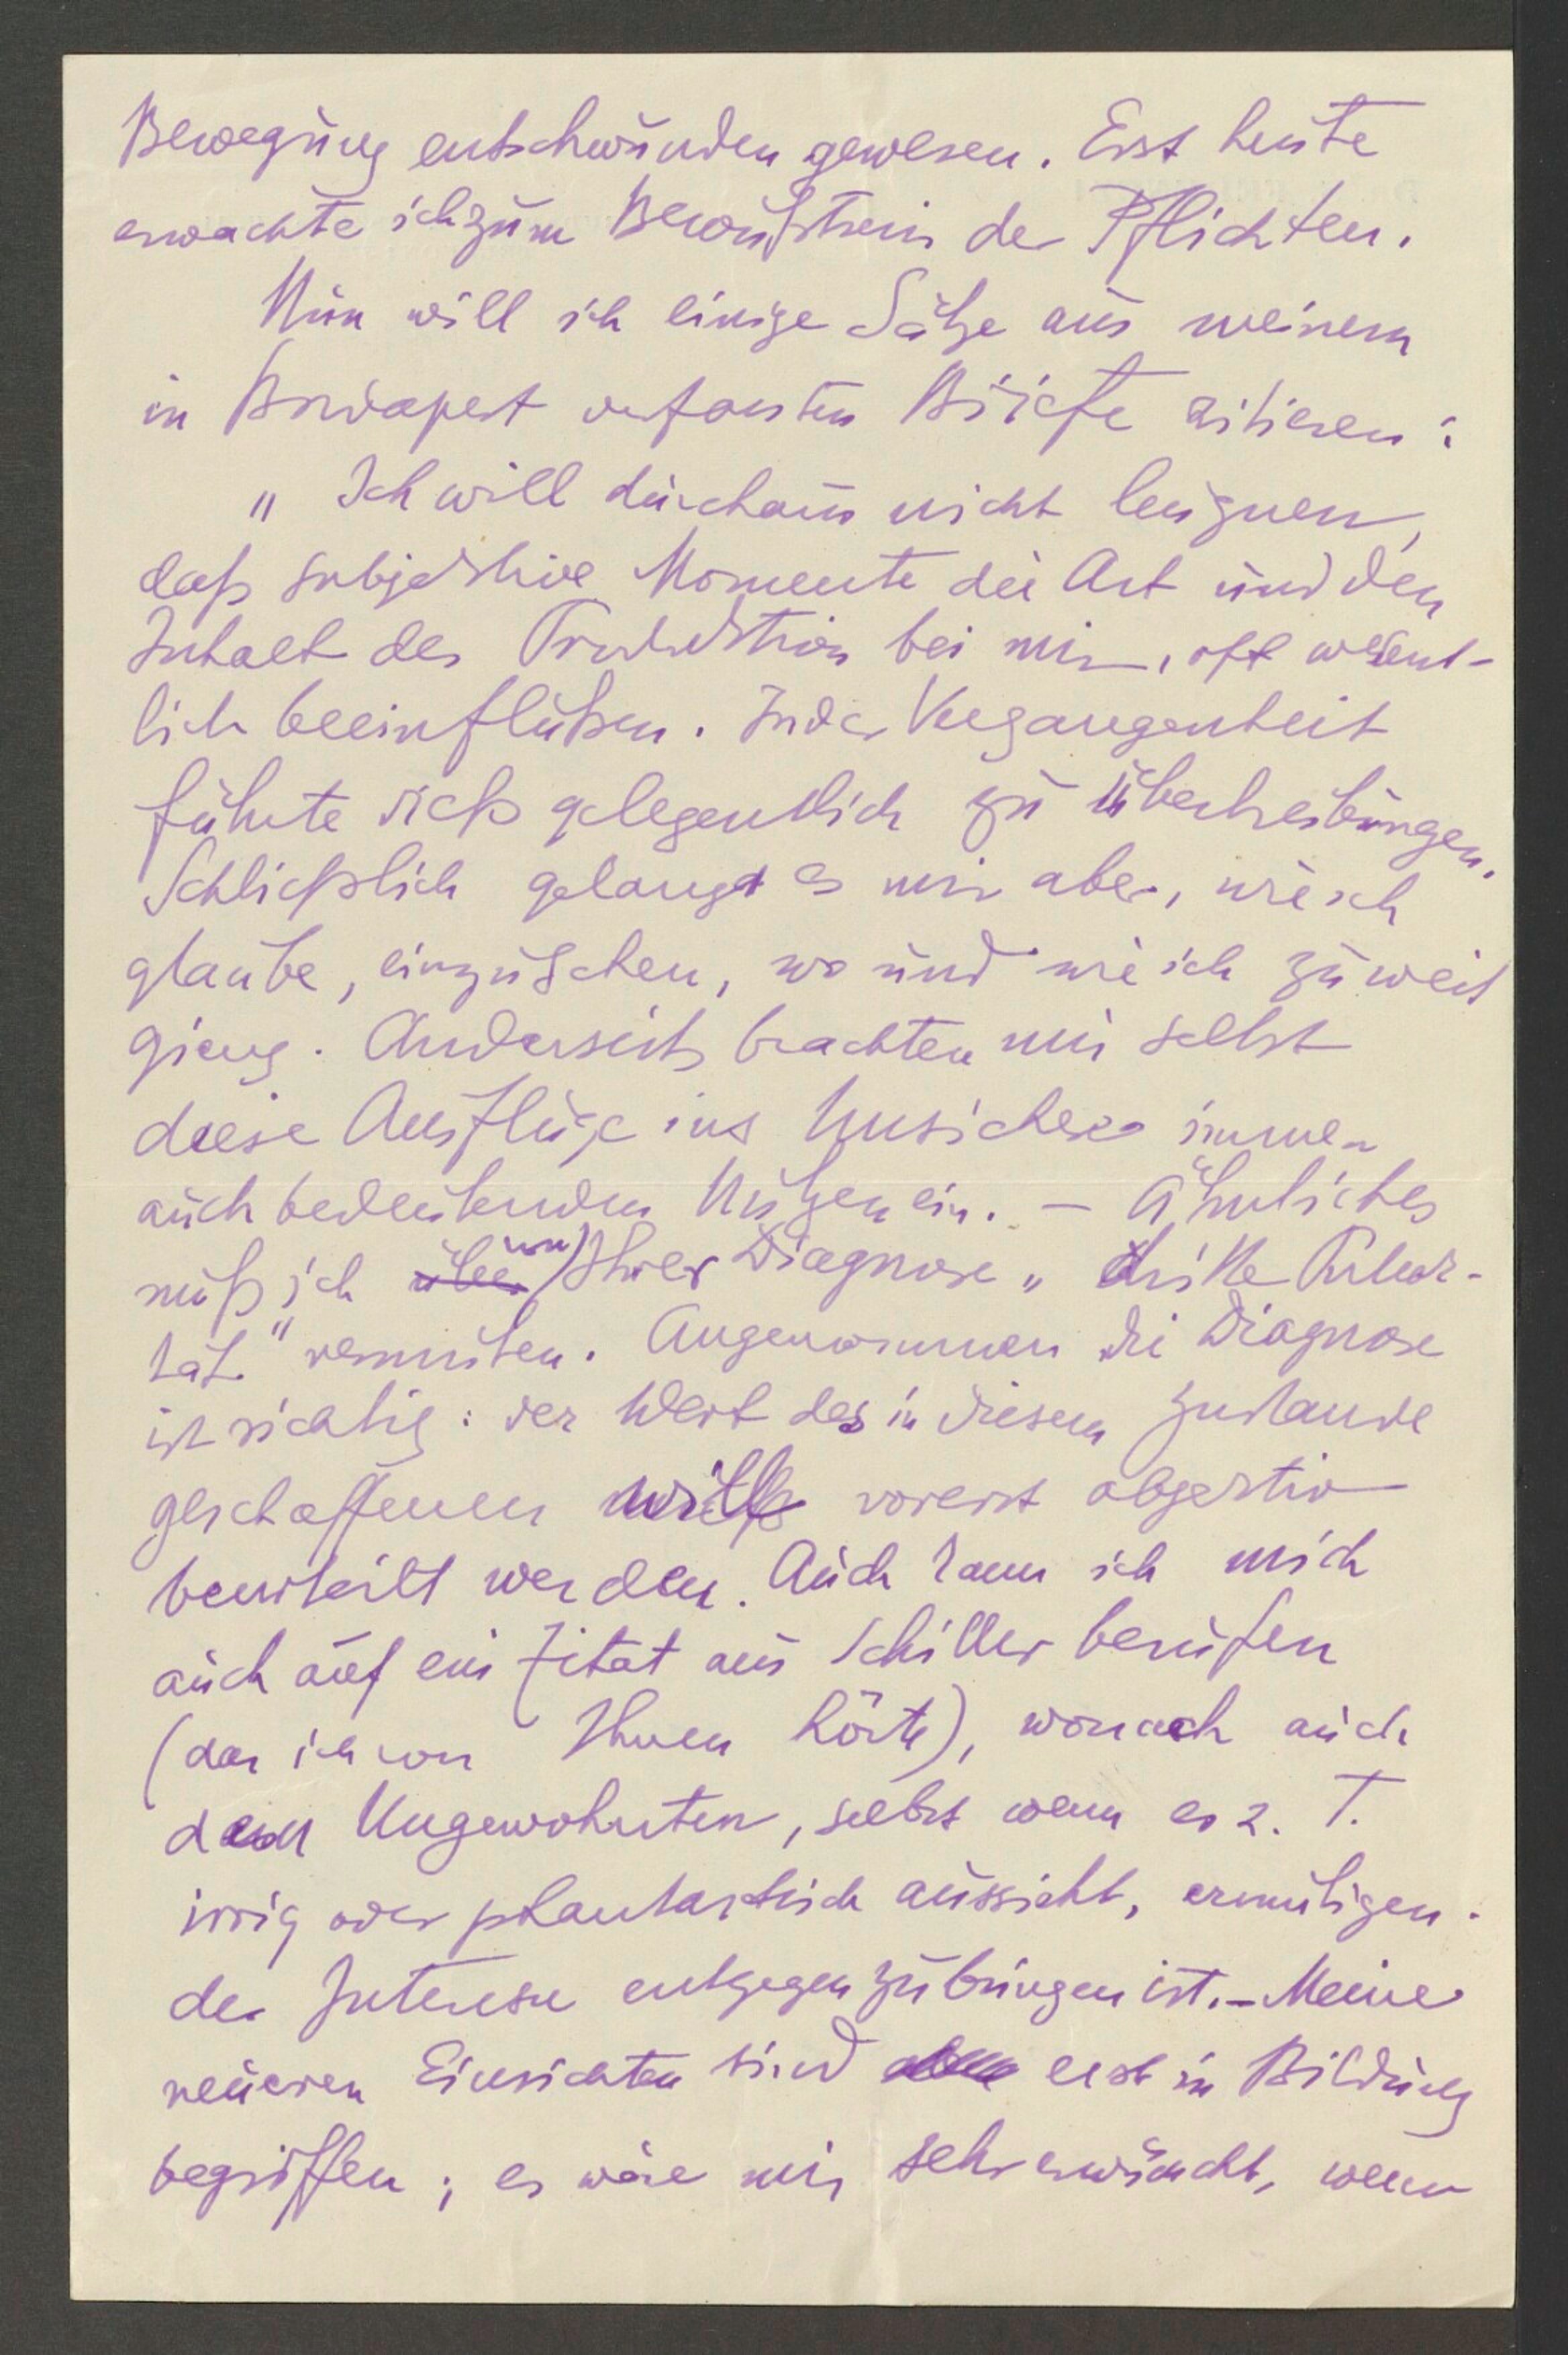 Bewegung entschwunden gewesen. Erst heute
erwachte ich zum Bewußtsein der Pflichten.
Nun will ich einige Sätze aus meinem
in Budapest verfassten Briefe zitieren:
„Ich will durchaus nicht leugnen,
daß subjektive Momente die Art und den
Inhalt der Produktion bei mir, oft wesent-
lich beeinflußen. In der Vergangenheit
führte dieß gelegentlich zu Übertreibungen.
Schließlich gelangt es mir aber, wie ich
glaube, einzusehen, wo und wie ich zu weit
gieng. Anderseits brachten mir selbst
diese Ausflüge ins Unsichere immer
auch bedeutenden Nutzen ein. – Ähnliches
muß ich von Ihrer Diagnose „dritte Puber-
tät" vermuten. Angenommen die Diagnose
ist richtig: der Wert des in diesem Zustande
geschaffenen muß vorerst objektiv
beurteilt werden. Auch kann ich mich
auch auf ein Zitat aus Schiller berufen
(das ich von Ihnen hörte), wonach auch
dem Ungewohnten, selbst wenn es z. T.
irrig oder phantastisch aussieht, ermutigen-
des Interesse entgegenzubringen ist. – Meine
neueren Einsichten sind erst in Bildung
begriffen; es wäre mir sehr erwünscht, wenn